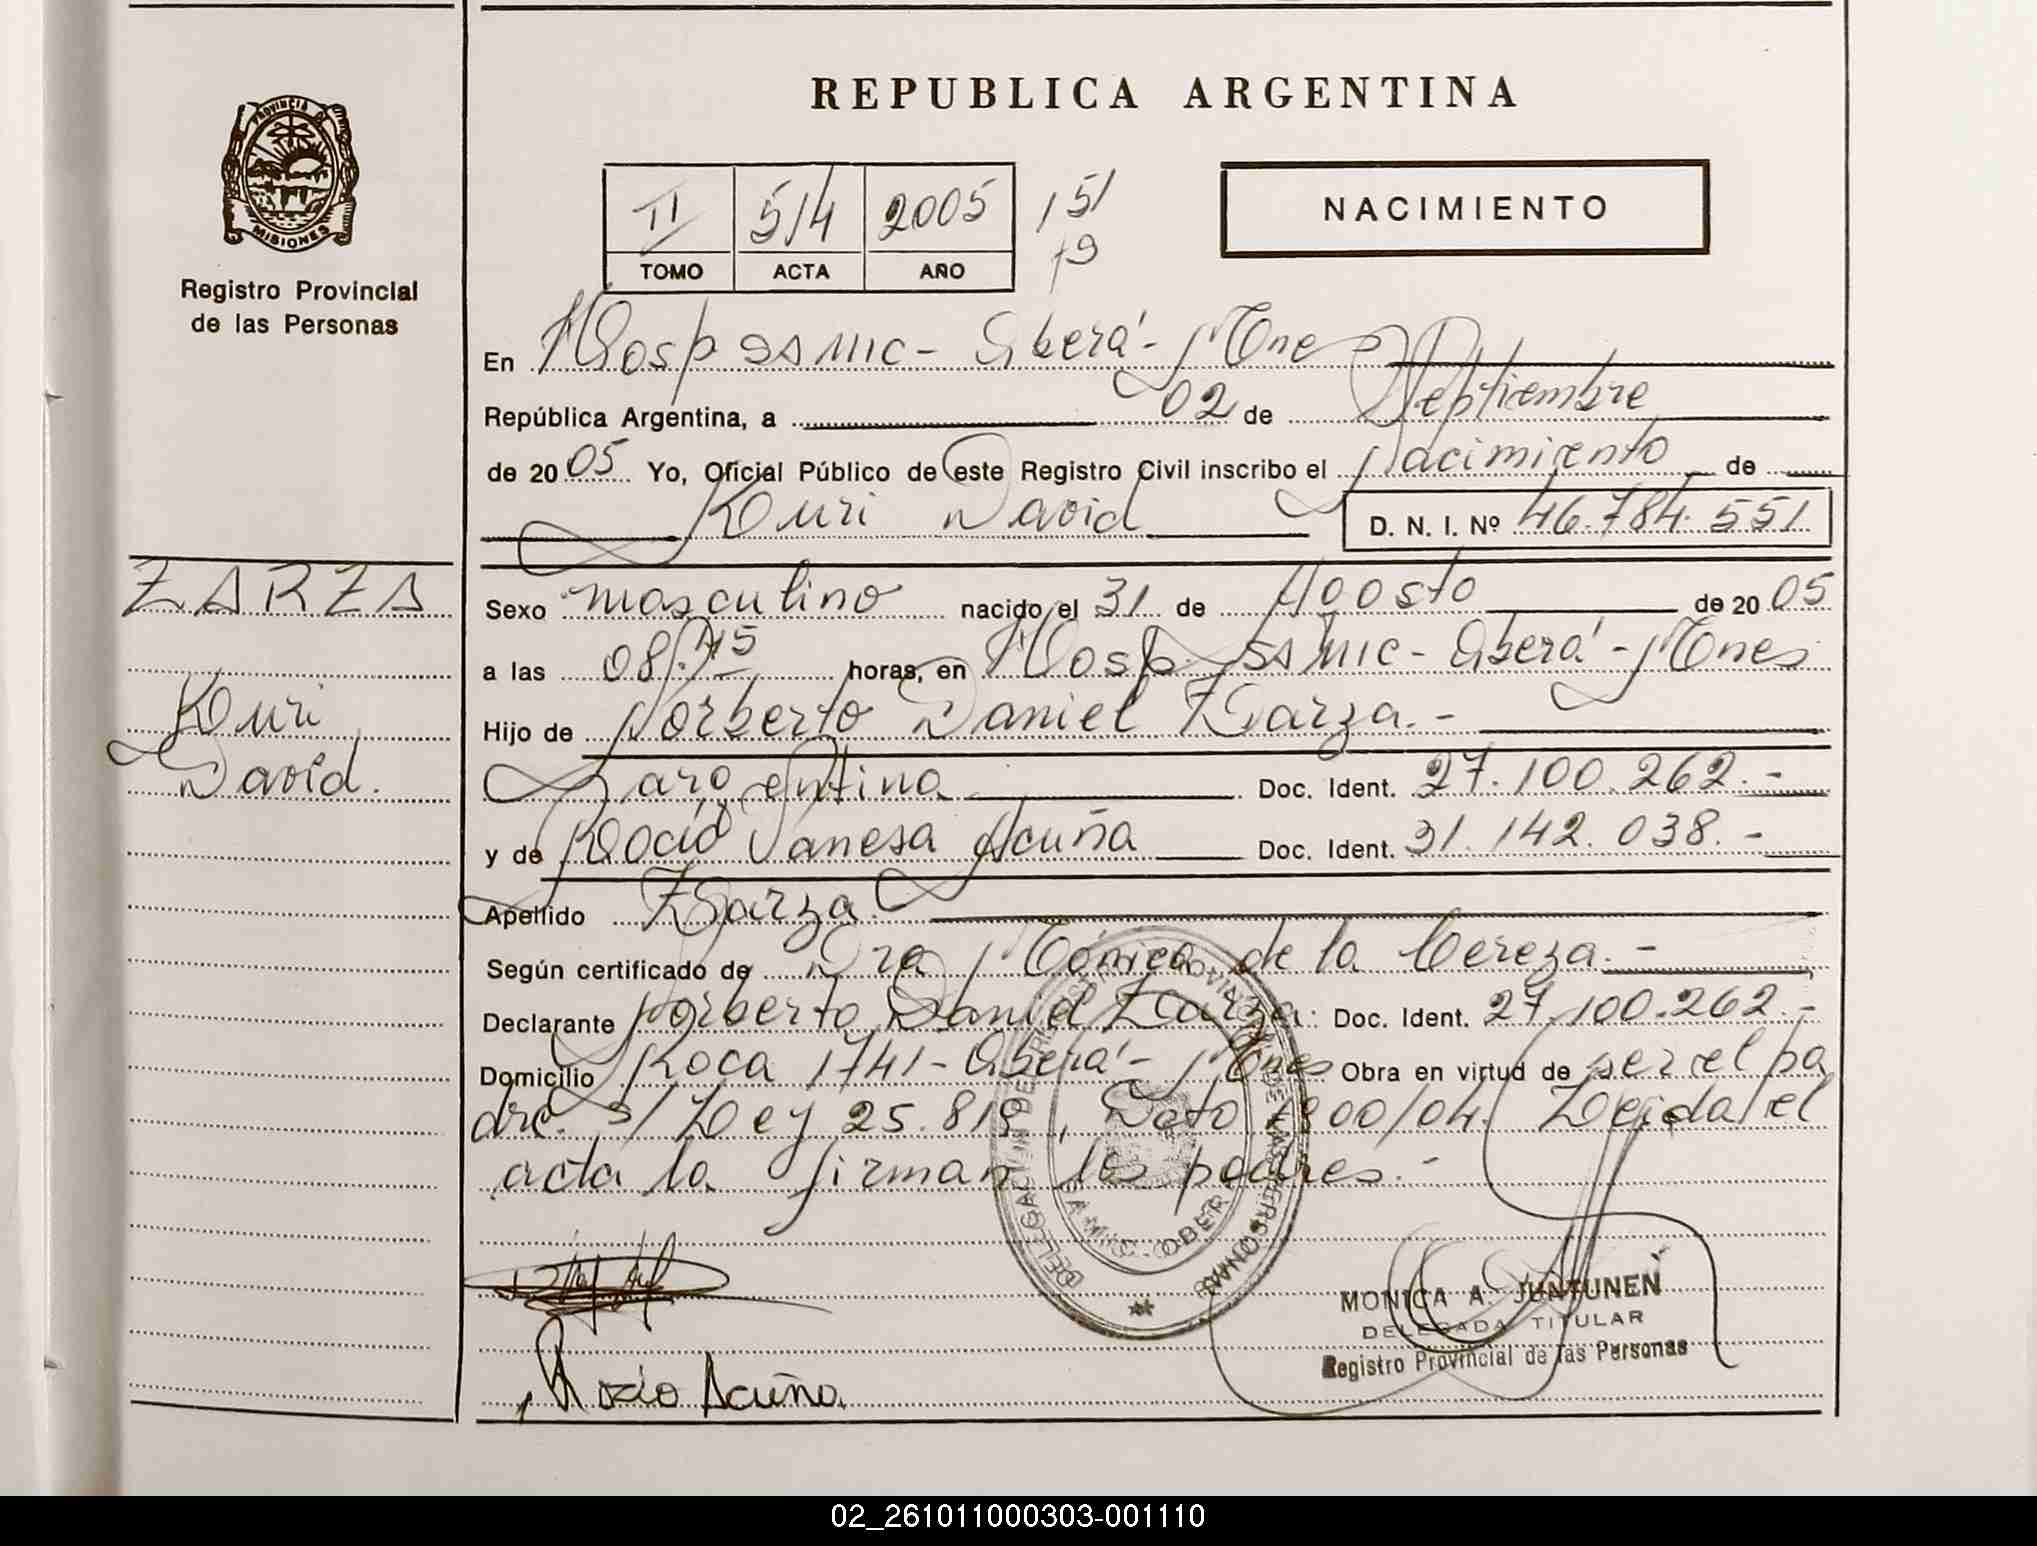 REPUBLICA ARGENTINA
PROVINCIA DE MISIONES
Registro Provincial
de las Personas
II 514 2005 151
TOMO ACTA AÑO 19
NACIMIENTO
En Hosp SAMIC - Oberá - Mnes
República Argentina, a 02 de Septiembre
de 2005 Yo, Oficial Público de este Registro Civil inscribo el Nacimiento de
Kuri David D. N. I. Nº 46.784.551
ZARZA
Kuri
David.
Sexo masculino nacido el 31 de Agosto de 2005
a las 08.45 horas, en Hosp. SAMIC - Oberá - Mnes
Hijo de Norberto Daniel Zarza.-
argentina Doc. Ident. 27.100.262.-
y de Rocío Vanesa Acuña Doc. Ident. 31.142.038.-
Apellido Zarza.
Según certificado de Dra Mónica de la Cereza.-
Declarante Norberto Daniel Zarza. Doc. Ident. 27.100.262.-
Domicilio Roca 1741 - Oberá - Mnes Obra en virtud de ser el pa
dre. s/ Ley 25.819, Dcto 1800/04. Leída el
acta la firman los padres.-
DELEGACION DEL REGISTRO PROVINCIAL DE LAS PERSONAS
SAMIC - OBERA
Rozio Acuña.
MONICA A. JUNTUNEN
DELEGADA TITULAR
Registro Provincial de las Personas
02_261011000303-001110